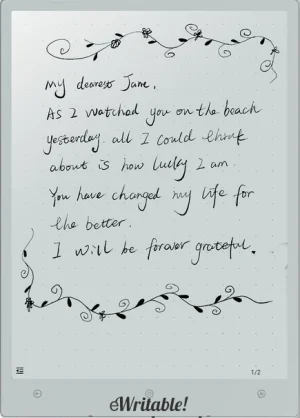 My dearest Jane,
As I watched you on the beach
yesterday. all I could think
about is how lucky I am.
You have changed my life for
the better.
I will be forever grateful.
1/2
eWritable!